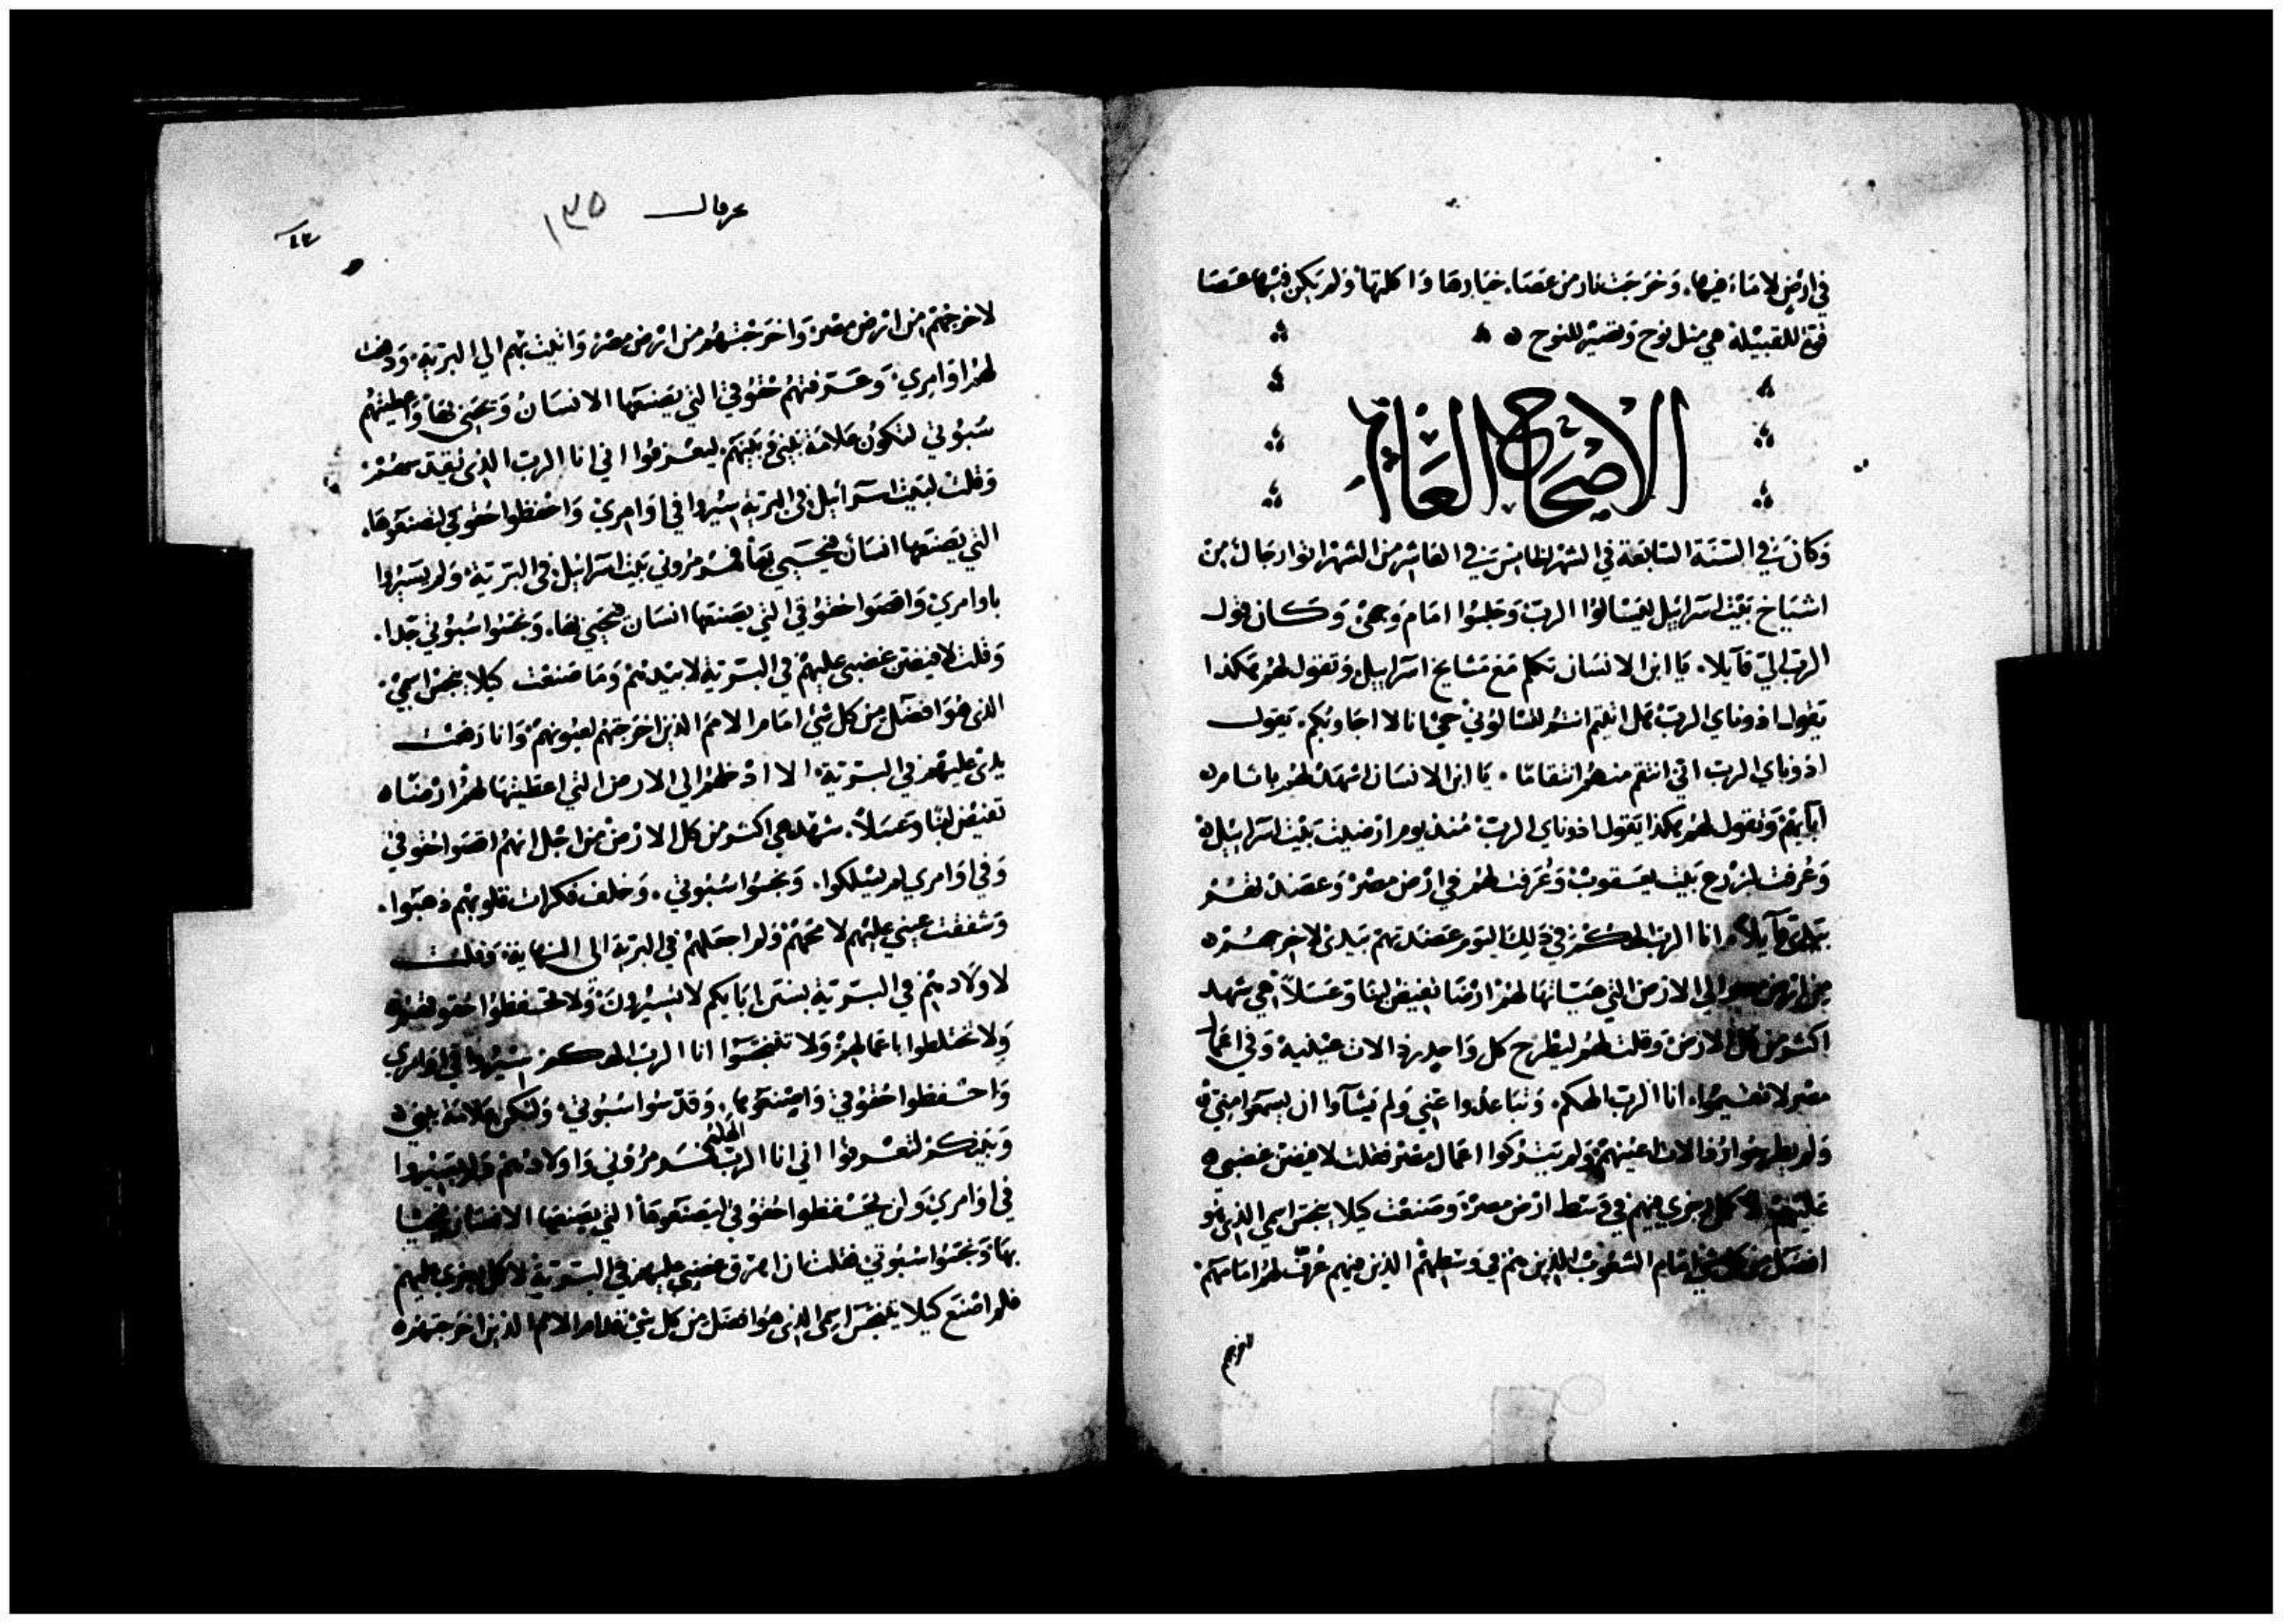 في ارض لا ماء فيها، وخرجت نار من عصاء خيارها واكلتها ولم يكن فيها عصا
قوة للقبيلة هي مثل نوح وتصير للنوح
الاصحاح العشر
وكان في السنة السابعة في الشهر الخامس في العاشر من الشهر اتوا رجال من
اشياخ بيت اسرائيل ليسالوا الرب وجلسوا امام وجهي وكان قول
الرب الي قايلا، يا ابن الانسان تكلم مع مشايخ اسراييل وتقول لهم هكذا
يقول اذوناي الرب هل اتيتم انتم لتسالوني حي انا لا اجاوبكم، يقول
اذوناي الرب اني انتقم منهم انتقاما، يا ابن الانسان اشهد لهم باثامر
آبايهم وتقول لهم هكذا يقول اذوناي الرب منذ يوم ارضيت بيت اسراييل
وعُرفت لزرع بيت يعقوب وعُرفت لهم في ارض مصر وعضدتهم
بيدي قآيلا، انا الرب الهكم في ذلك اليوم عضدتهم بيدي لاخرجهم
من ارض مصر الي الارض التي هيئتها لهم ارضا تفيض لبنا وعسلاً هي شهد
اكثر من كل الارض وقلت لهم ليطرح كل واحد رذالات عينيه وفي اعمال
مصر لا تتنجسوا، انا الرب الهكم، وتباعدوا عني ولم يشآوا ان يسمعوا مني
ولم يطرحوا رذالات اعينهم ولم يتركوا اعمال مصر فقلت لافيضن غضبي
عليهم لاكمل رجزي فيهم في وسط ارض مصر وصنعت كيلا ينجس اسمي الذي هو
افضل من كل شي امام الشعوب الذين هم في وسطهم الذين فيهم عُرفت لهم امامهم
لاخرجهم
حزقيال ١٣٥
لاخرجهم من ارض مصر واخرجتهم من ارض مصر واتيت بهم الي البرية، ودفعت
لهم اوامري، وعرفتهم حقوقي التي يصنعها الانسان ويحيي بها، واعطيتهم
سبوتي لتكون علامة بيني وبينهم ليعرفوا اني انا الرب الذي يقدسهم
وقلت لبيت اسراييل في البرية سيروا في اوامري واحفظوا حقوقي لتصنعوها
التي يصنعها انسان فيحيي بها فمرمروني بيت اسراييل في البرية ولم يسيروا
باوامري واقصوا حقوقي التي يصنعها انسان فيحيي بها، ونجسوا سبوتي جدا،
وقلت لافيضن غضبي عليهم في البرية لابيدهم وما صنعت كيلا ينجس اسمي
الذي هو افضل من كل شي امام الامم الذين اخرجتهم لعيونهم وانا رفعت
يدي عليهم في البرية الا ادخلهم الي الارض التي اعطيتها لهم ارضا
تفيض لبنا وعسلاً، شهد هي اكثر من كل الارض من اجل انهم اقصوا حقوقي
وفي اوامري لم يسلكوا، ونجسوا سبوتي، وخلف فكرات قلوبهم ذهبوا،
وشفقت عيني عليهم لامحيهم ولم اجعلهم في البرية الي النهاية، وقلت
لاولادهم في البرية بسنن ابايكم لا تسيرون ولا تحفظوا حقوقهم
ولا تختلطوا باعمالهم ولا تتنجسوا انا الرب الهكم سيروا في اوامري
واحفظوا حقوقي واصنعوها، وقدسوا سبوتي، ولتكن علامة بيني
وبينكم لتعرفوا اني انا الرب الهكم فمرمروني واولادهم ولم يسيروا
في اوامري ولن يحفظوا حقوقي ليصنعوها التي يصنعها الانسان فيحيا
بها ونجسوا سبوتي فقلت ان اهرق غضبي عليهم في البرية لاكمل رجزي عليهم
فلم اصنع كيلا يتنجس اسمي الذي هو افضل من كل شي قدام الامم الذين اخرجتهم